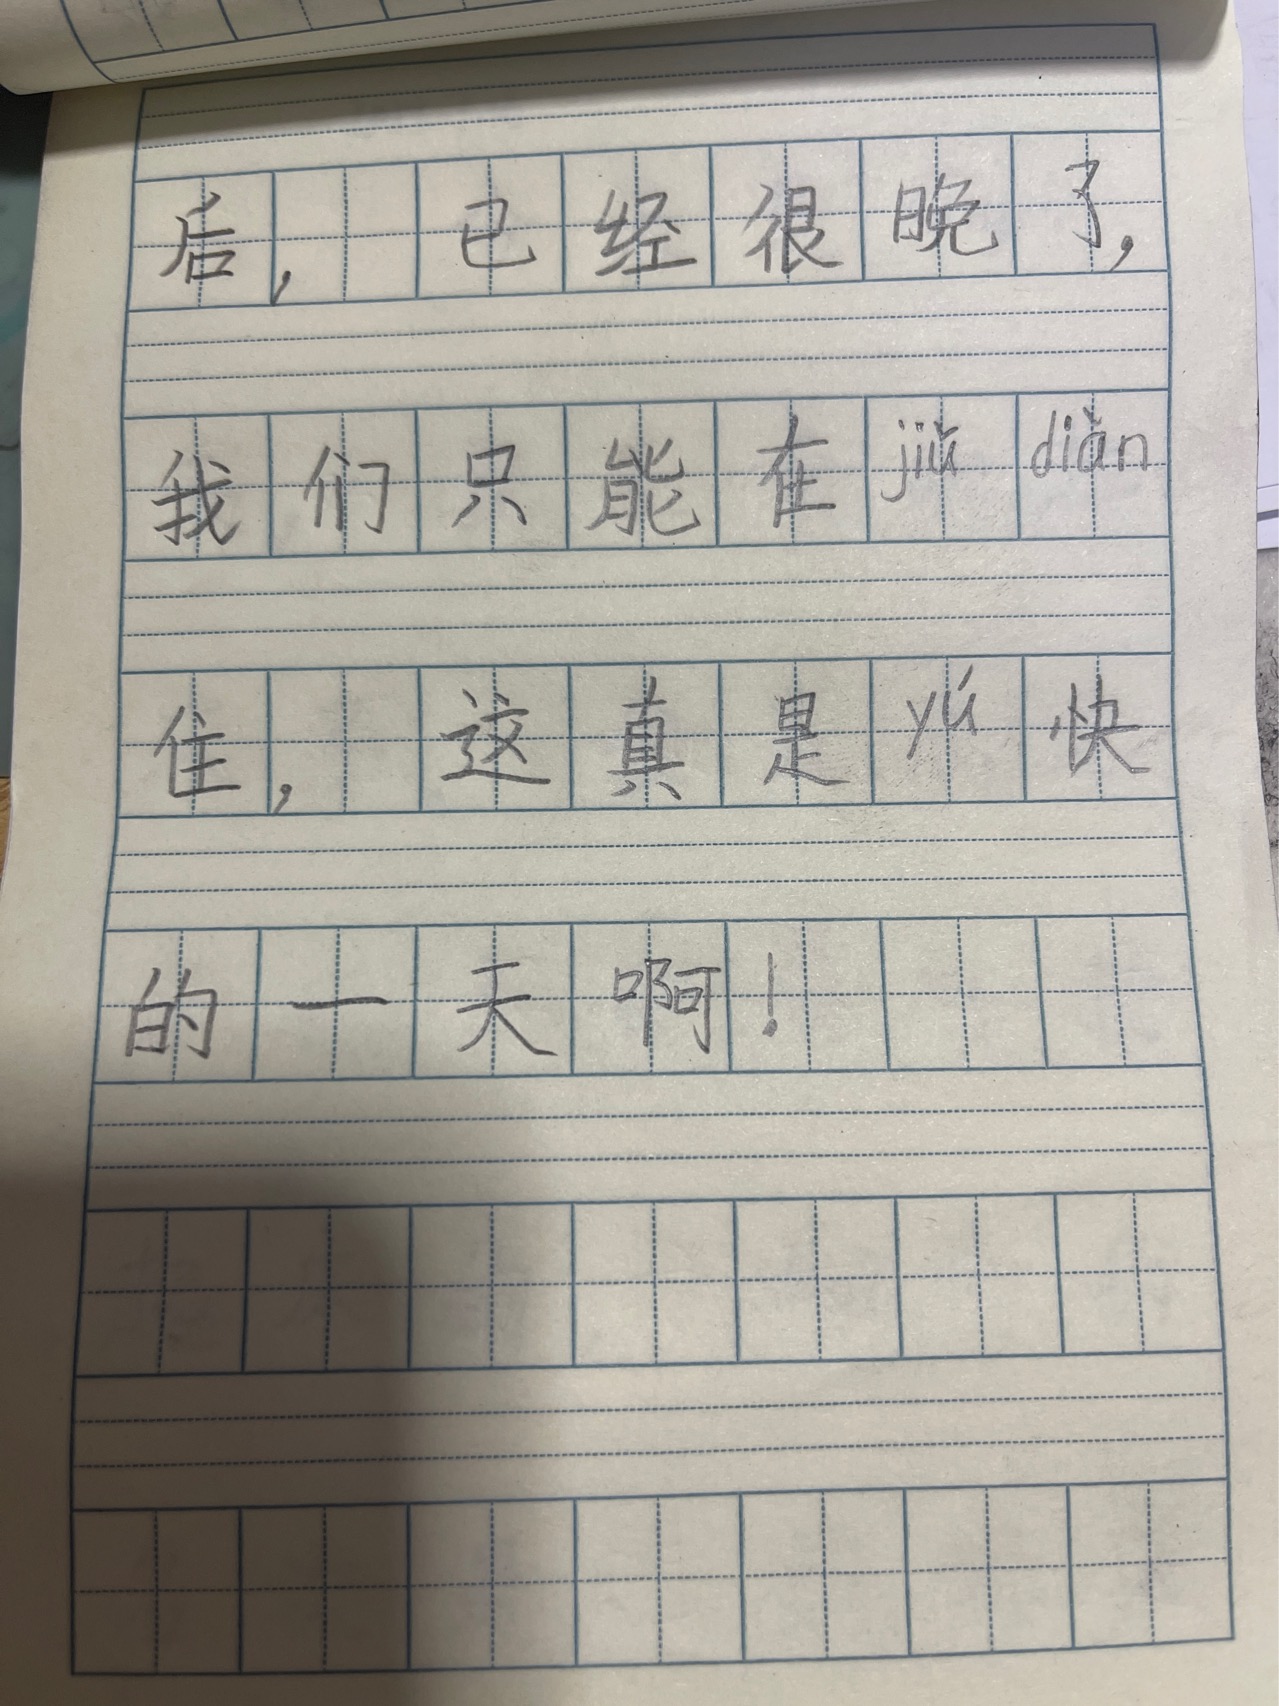 后，已经很晚了，
我们只能在jiǔ diàn
住，这真是yú快
的一天啊！